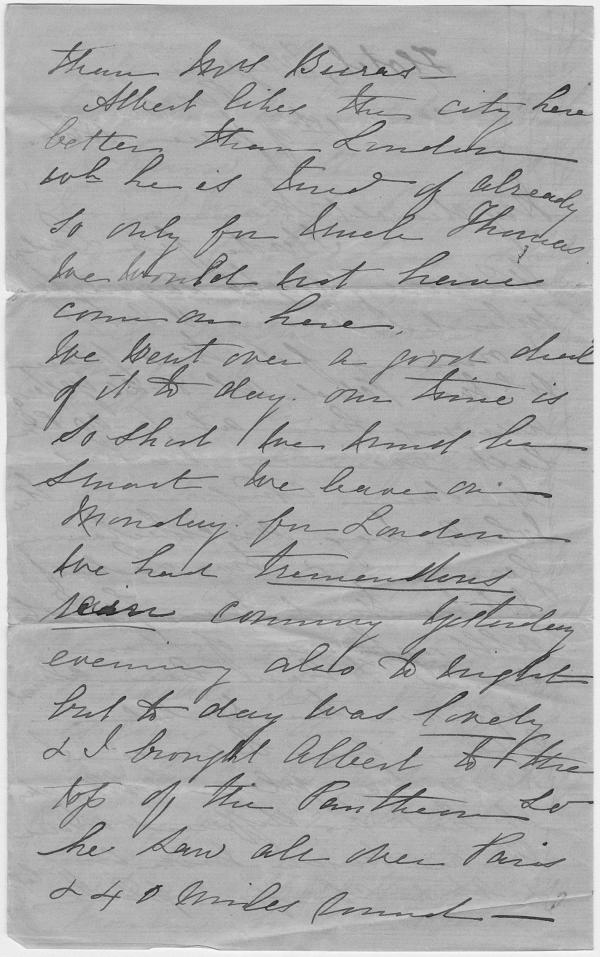 than Mrs Burras —
Albert likes the city here
better than London
wh he is tired of already
so only for Uncle Thomas
we would not have
come on here.
We went over a good deal
of it to day. our time is
so short we must be
smart we leave on
Monday for London
We had tremendous
rain coming yesterday
evening also to night
but to day was lovely
& I brought Albert to the
top of the Pantheon so
he saw all over Paris
& 40 miles round —